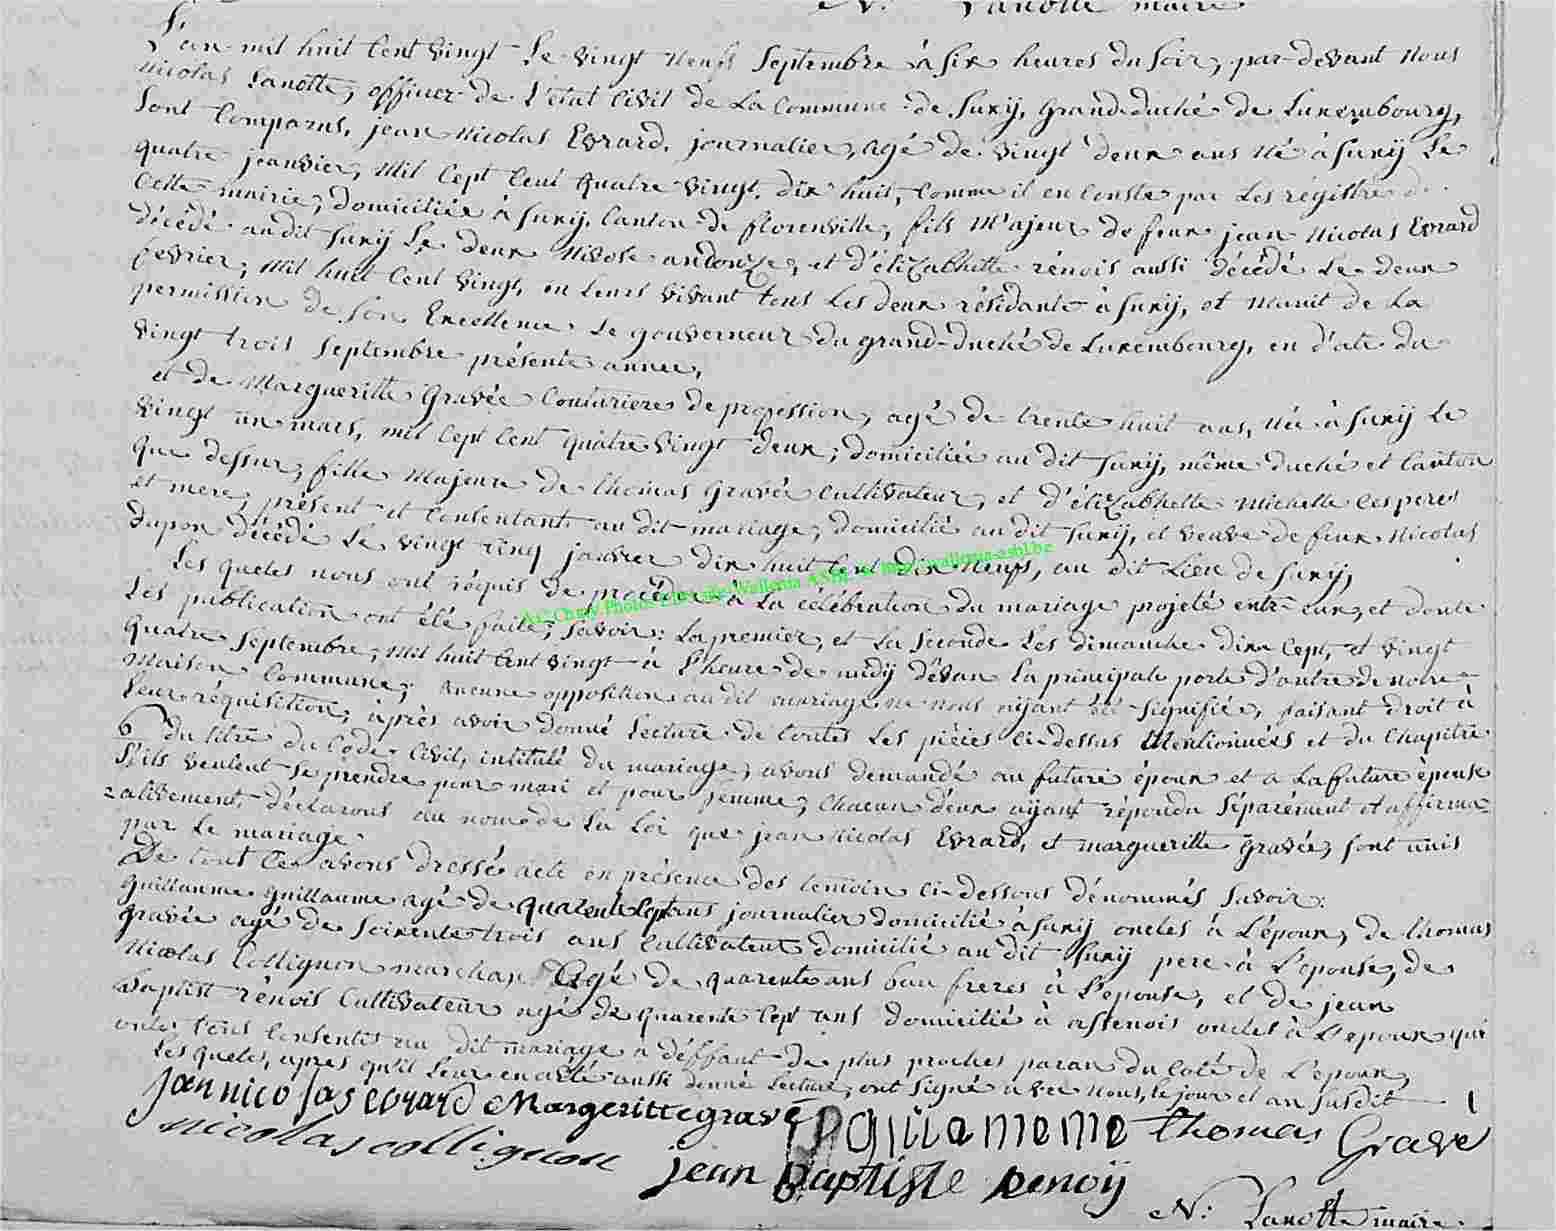 N. Lanotte maire
L'an mil huit Cent Vingt Le vingt neuf Septembre à Six heures du Soir, par-devant Nous
Nicolas Lanotte, officier de L'état Civil de La Commune de Suxÿ, Grand-duché de Luxembourg,
Sont Comparus, jean Nicolas Evrard, journalier, agé de vingt deux ans Né à Suxÿ Le
quatre jeanvier, Mil Sept Cent quatre Vingt dix huit, Comme il en Conste par Les régistre de
Cette mairie, domiciliée à Suxÿ, Canton de florenville, fils M'ajeur de feux jean Nicolas Evrard
décédé audit Suxÿ Le deux Nivose an Donze, et d'élizabhette rénois aussi décédé Le deux
fevrier, Mil huit Cent Vingt, en Leurs vivant tous Les deux résidants à Suxÿ, et Munit de La
permission de Son Excellence Le gouverneur du grand-Duché de Luxembourg, en d'ate du
vingt trois Septembre présente année,
et de Margueritte Gravée Couturiere de profession, agé de trente huit ans, Née à Suxÿ Le
vingt un mars, mil Sept Cent quatre vingt deux, domiciliée au dit Suxÿ, même duché et Canton
que dessur, fille Majeure de thomas Gravée Cultivateur, et d'élizabhette Michelle Ces peres
et mere, présent et Consentant au dit mariage, domicilié au dit Suxÿ, et veuve de feux Nicolas
Dupon décédé Le vingt cinq janvier dix huit Cent Dix Neuf, au dit Lieu de Suxÿ,
Les quelles nous ont réquis de procéder à La célébration du mariage projeté entre eux, et donte
Les publication ont été faite, Savoir: La premier, et La Seconde Les dimanche dix Sept, et vingt
quatre Septembre, Mil huit Cent vingt à L'heure de midy dévan La principale porte d'antre de notre
Maison Commune, Aucune opposition au dit mariage ne nous aÿant été Signifiée, faisant droit à
Leur réquisition, àprès avoir Donné Lecture de toutes Les pièces Ci-dessus Mentionnées et du Chapitre
6 du titre du Code Civil, intitulé du mariage, avons demandé au future époux et a La future épouse
S'ils veulent Se prendre pour mari et pour femme, Chacun d'eux aÿant répondu Séparément et affirma=
=ativement, déclarons au nom de La Loi que jean Nicolas Evrard, et margueritte Gravée, sont unis
par Le mariage
De tout Ce avons dressé acte en présence des temoin Ci-dessous dénommés Savoir:
Guillaume Guillaume agé de quarente Sept ans journalier domicilié à Suxÿ oncles à L'époux, de thomas
Gravée agé de Soixente trois ans Cultivateur domicilié au dit Suxÿ pere à L'épouse, de
Nicolas Collignon marchan agé de quarente ans bau freres à L'epouse, et de jean
baptist rénois Cultivateur agé de quarente Sept ans domicilié à astenois oncles à L'epoux qui
onte tous Consentis au dit mariage à déffaut de plus proches paran du Coté de L'époux,
Les queles, apres qu'il Leur en a été aussi donné Lecture, ont Signé avec Nous, Le jour et an Susdit
jan nico las evrard Margeritte gravé g guiiameme thomas Gravé
nicolas collignon jean Baptiste Renoÿ
N. Lanotte maire